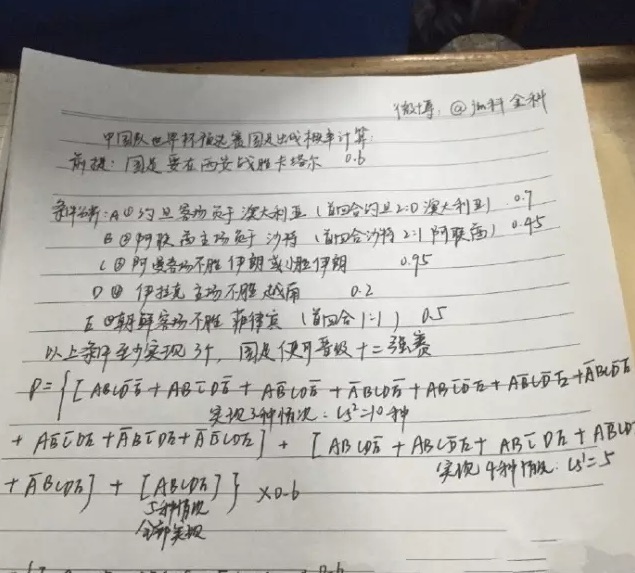 微博：@jm科全科
中国队世界杯预选赛国足出线概率计算：
前提：国足要在西安战胜卡塔尔 0.6
条件分析：A① 约旦客场负于澳大利亚（首回合约旦2:0澳大利亚） 0.7
B② 阿联酋主场负于沙特（首回合沙特2:1阿联酋） 0.45
C③ 阿曼客场不胜伊朗或小胜伊朗 0.95
D④ 伊拉克主场不胜越南 0.2
E⑤ 朝鲜客场不胜菲律宾（首回合1:1） 0.5
以上条件至少实现3个，国足便可晋级十二强赛
P={[ABCD̅E̅+ABC̅DE̅+AB̅CDE̅+A̅BCDE̅+ABC̅D̅E+AB̅CD̅E+A̅BCD̅E
实现3种情况：C5²=10种
+AB̅C̅DE+A̅BC̅DE+A̅B̅CDE]+[ABCDE̅+ABCD̅E+ABC̅DE+AB̅CD
实现4种情况：C5¹=5
+A̅BCDE]+[ABCDE]}×0.6
5种情况
全部实现
0.6